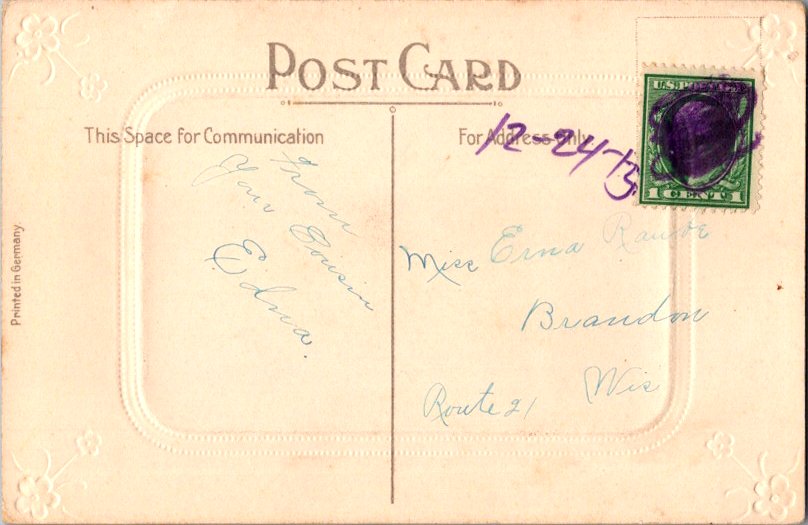 POST CARD
This Space for Communication
For Address Only
12-24-15
U.S. POSTAGE
1 CENT 1
From
Your Cousin
Edna.
Miss Erna
Brandon
Wis
Route 21
Printed in Germany